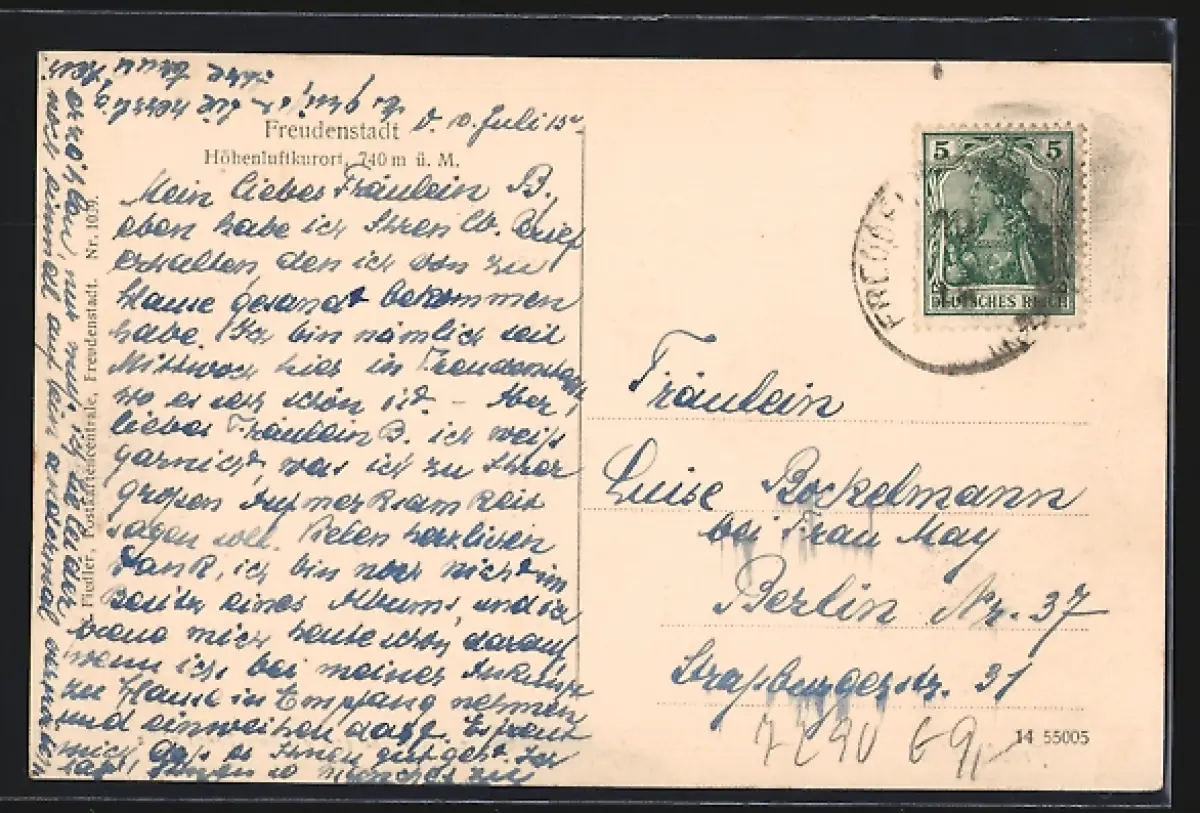 Freudenstadt
Höhenluftkurort, 740 m ü. M.
Juli 15
Mein liebes Fräulein B.,
eben habe ich Ihren lb. Brief
erhalten, den ich von zu
Hause gesandt bekommen
habe. Ich bin nämlich seit
Mittwoch hier in Freudenstadt,
wo es sehr schön ist. – Aber,
liebes Fräulein B. ich weiß
garnicht, was ich zu Ihrer
großen Aufmerksamkeit
sagen soll. Vielen herzlichen
Dank, ich bin noch nicht im
Besitz eines Albums, und ich
freue mich heute schon darauf
wenn ich's bei meiner Ankunft
zu Hause in Empfang nehmen
und einweihen darf. Es freut
mich, daß es Ihnen gut geht.
nur muß ich
noch einmal auf ein andermal
Fiedler, Postkartencentrale, Freudenstadt. Nr. 1039.
5 5
DEUTSCHES REICH
FREUDENST
Fräulein
Luise Bockelmann
bei Frau May
Berlin Nr. 37
Straßburgerstr. 31
7290 G9
14 55005